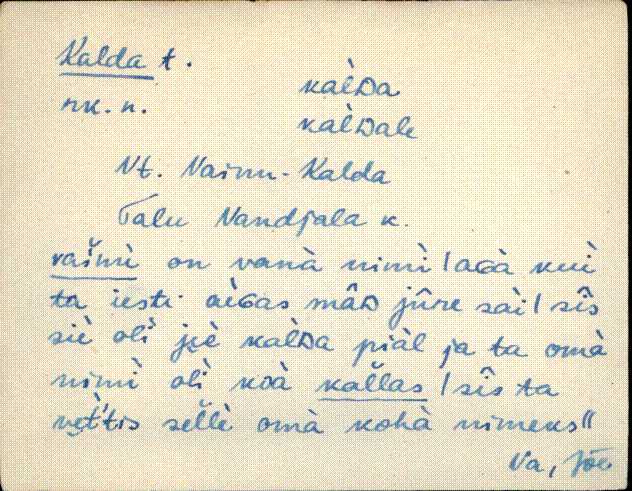 Kalda t.
nk. n.
kàlDa
kàlDale
Vt. Vainu-Kalda
Talu Nandjala k.
vaĭmì̬ on vanà nimì / aGà kui
ta iesti àeGas mâD jûre sài / sîs
siè oli jèe kàlDa piàl ja ta omà
nimì oli kòà kallas / sîs ta
vet'tis sellè omà kohà nimeks //
Va, Jõe